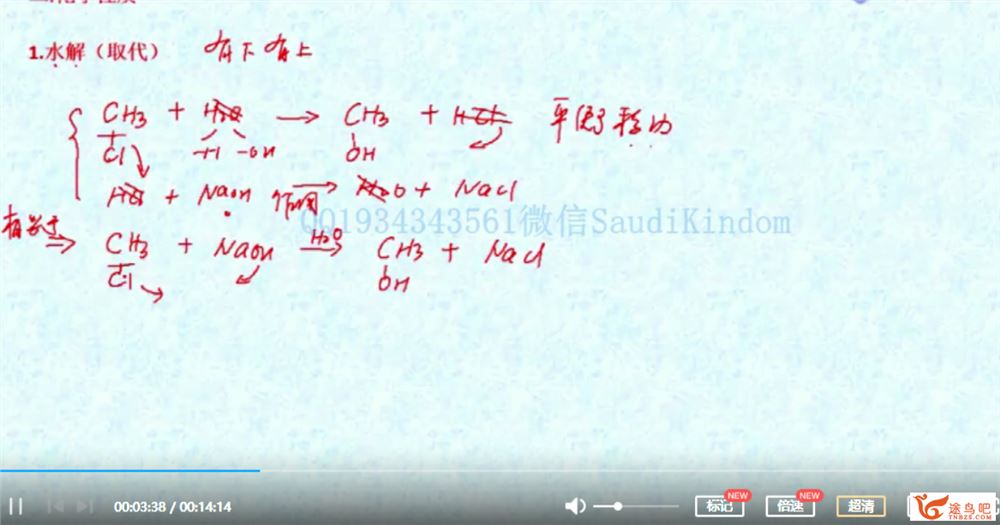 1.水解（取代） 有下有上
CH3 + H2O → CH3 + HCl 平衡移动
Cl -H -OH OH
HCl + NaOH 作用 → H2O + NaCl
QQ1934343561微信SaudiKindom
相当于 ⇒ CH3 + NaOH H2O → CH3 + NaCl
Cl OH
00:03:38 / 00:14:14 标记 NEW 倍速 NEW 超清 途鸟吧
TNBZS.COM